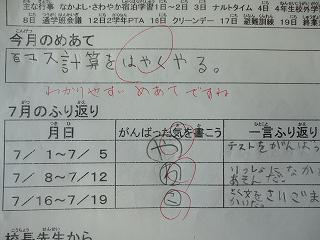 主な行事 なかよし・さわやか宿泊学習1日~2日 3日 ナルトタイム 4日 4年生校外学
8日 通学班会議 12日2学年PTA 16日 クリーンデー 17日 避難訓練 19日 終業
今月のめあて
百マス計算をはやくやる。
わかりやすい めあて ですね
7月のふり返り
月日 がんばった気を書こう 一言ふり返り
7/ 1~7/ 5 や テストをがんばっ
7/ 8~7/12 ね
7/16~7/19 こ
校長先生から